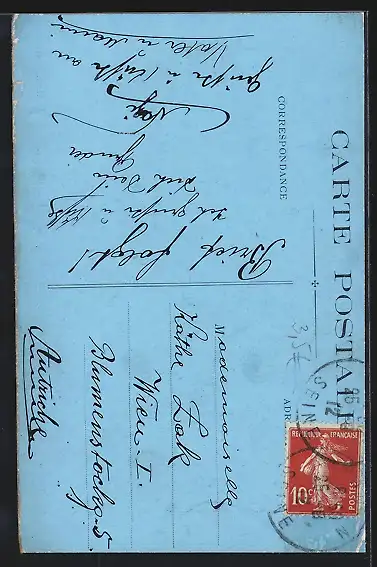 CARTE POSTALE
CORRESPONDANCE
ADR
Brief folgt!
Ich grüße u. küsse
Dich Dein
Bruder
Grüße u. Küsse an
Vater u. Mama
Mademoiselle
Käthe Zack
Wien I.
Blumenstockg. 5
Autriche
3,5 €
REPUBLIQUE FRANÇAISE
10c
POSTES
SEINE
12